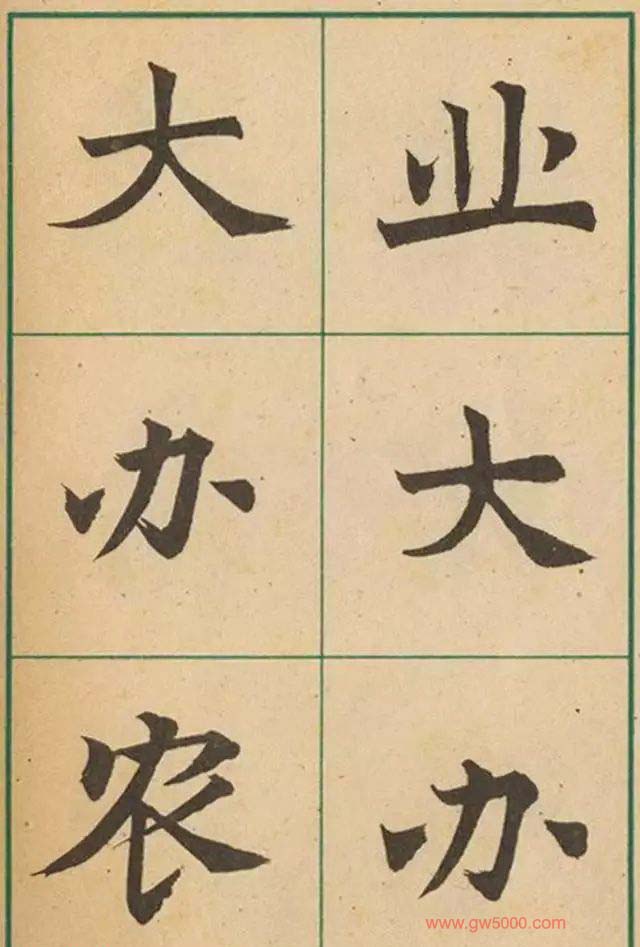 业大办
大办农
www.gw5000.com